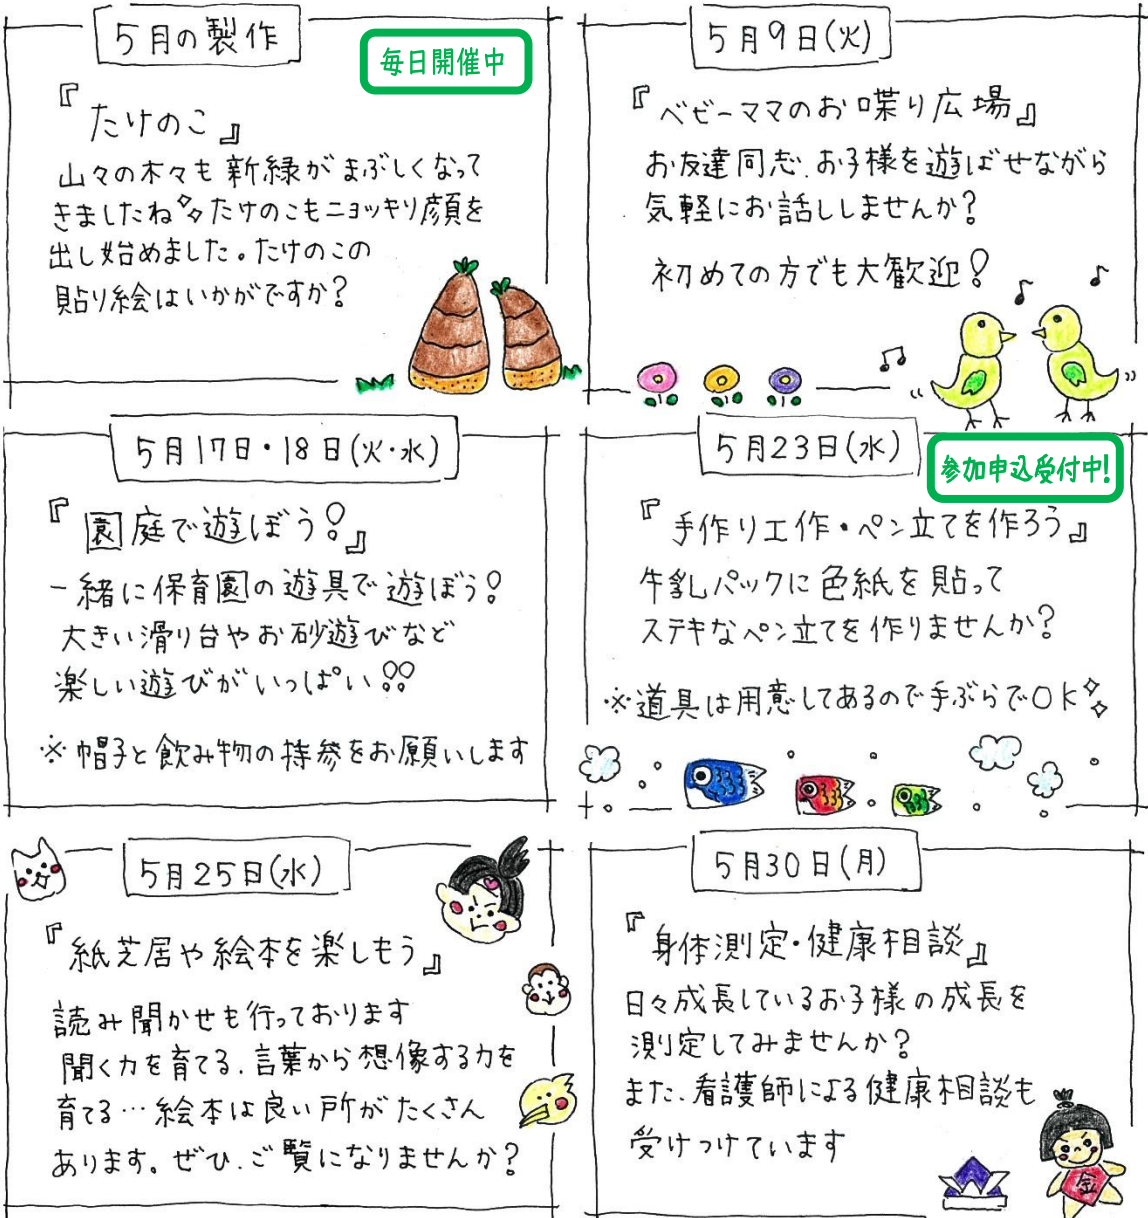 5月の製作
毎日開催中
『たけのこ』
山々の木々も新緑がまぶしくなって
きましたね たけのこもニョッキリ顔を
出し始めました。たけのこの
貼り絵はいかがですか?
5月9日(火)
『ベビーママのお喋り広場』
お友達同志、お子様を遊ばせながら
気軽にお話ししませんか?
初めての方でも大歓迎!
5月17日・18日(火・水)
『園庭で遊ぼう!』
一緒に保育園の遊具で遊ぼう!
大きい滑り台やお砂遊びなど
楽しい遊びがいっぱい!!
※帽子と飲み物の持参をお願いします
5月23日(水)
参加申込受付中!
『手作り工作・ペン立てを作ろう』
牛乳パックに色紙を貼って
ステキなペン立てを作りませんか?
※道具は用意してあるので手ぶらでOK
5月25日(水)
『紙芝居や絵本を楽しもう』
読み聞かせも行っております
聞く力を育てる、言葉から想像する力を
育てる…絵本は良い所がたくさん
あります。ぜひ、ご覧になりませんか?
5月30日(月)
『身体測定・健康相談』
日々成長しているお子様の成長を
測定してみませんか?
また、看護師による健康相談も
受けつけています
金